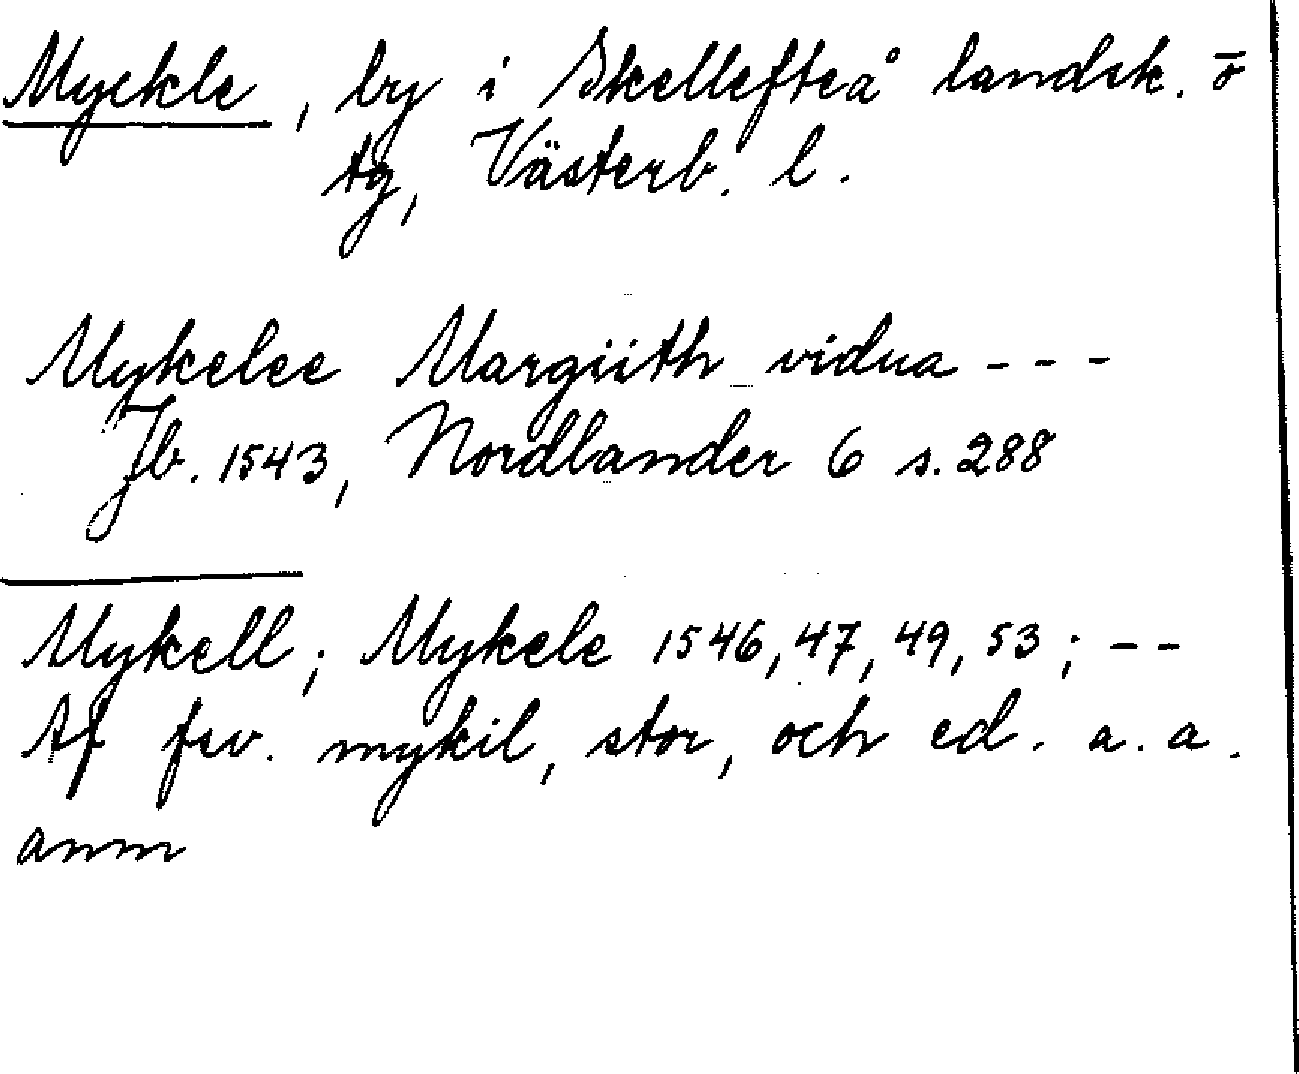 Myckle, by i Skellefteå landsk. ō
tg, Västerb. l.
Mykelee Margiith vidua - - -
Jb. 1543, Nordlander 6 s. 288
Mykell; Mykele 1546, 47, 49, 53; - -
Af fsv. mykil, stor, och ed. a. a.
anm